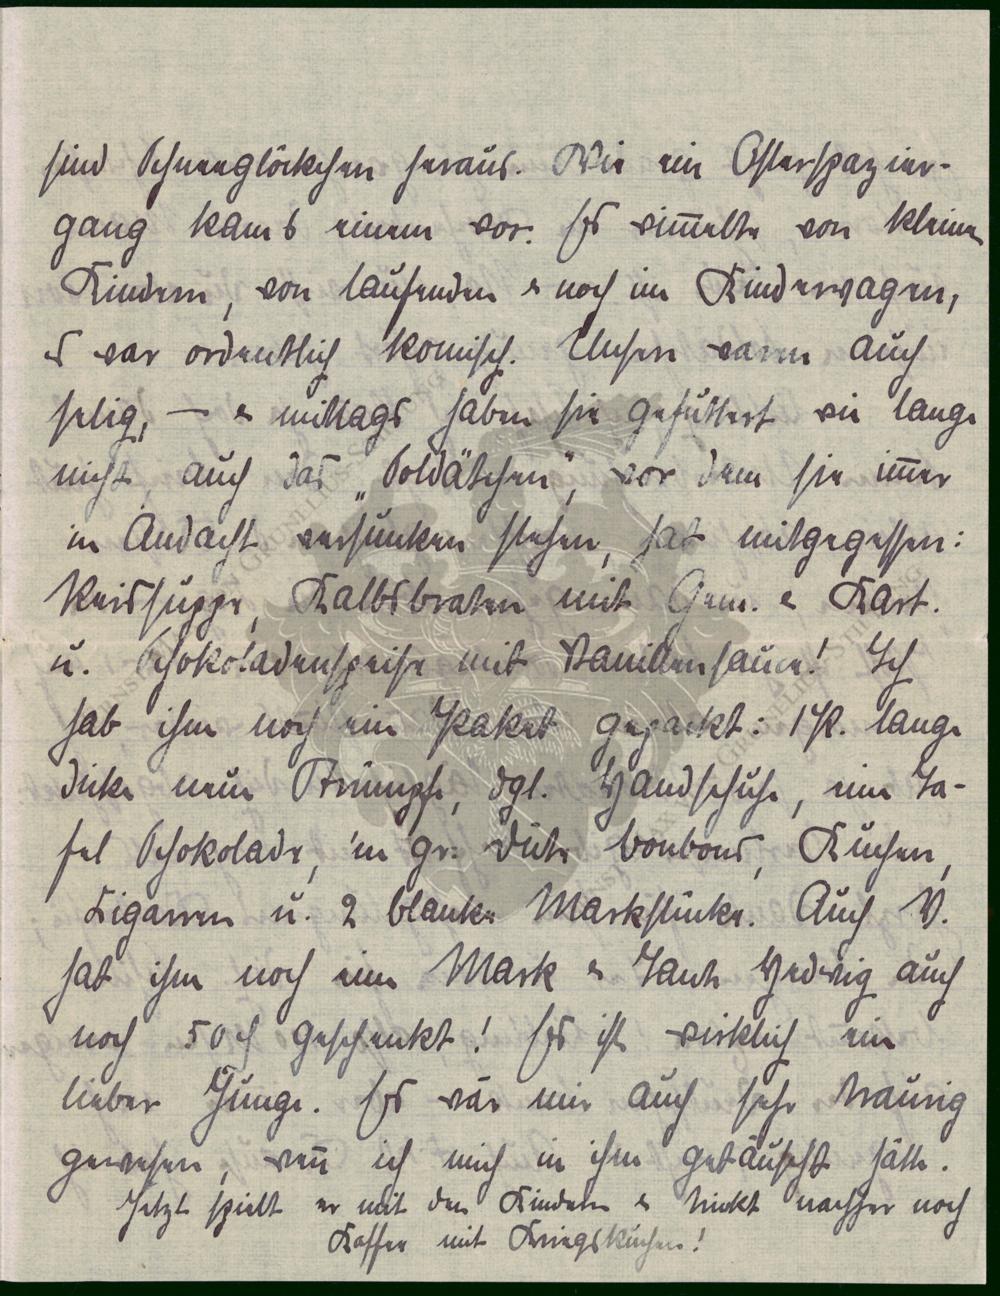 sind Schneeglöckchen heraus. Wie ein Osterspazier-
gang kams einem vor. Es wim̅elte von kleinen
Kindern, von laufenden & noch im Kinderwagen,
's war ordentlich komisch. Unsere waren auch
selig, — & mittags haben sie gefuttert wie lange
nicht, auch das „Soldätchen", vor dem sie im̅er
in Andacht versunken stehen, hat mitgegessen:
Reissuppe, Kalbsbraten mit Gem. & Kart.
u. Schokoladenspeise mit Vanillensauce! Ich
hab ihm noch ein Paket gepackt: 1 P. lange
dicke neue Strümpfe, dgl. Handschuhe, eine Ta-
fel Schokolade, 'ne gr. Düte bonbons, Kuchen,
Zigarren u. 2 blanke Markstücke. Auch V.
hat ihm noch eine Mark & Tante Hedwig auch
noch 50 ₰ geschenkt! Es ist wirklich ein
lieber Junge. Es wär mir auch sehr traurig
gewesen, wen̅ ich mich in ihm getäuscht hätte.
Jetzt spielt er mit den Kindern & trinkt nachher noch
Kaffee mit Kriegskuchen!